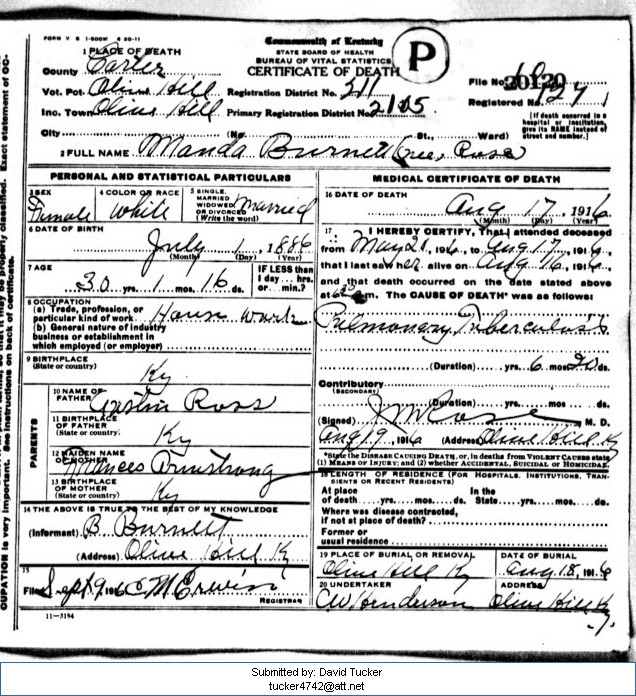 FORM V S 1-500M 6 20-11
1 PLACE OF DEATH
County Carter
Vot. Pct. Olive Hill
Inc. Town Olive Hill
City
Commonwealth of Kentucky
STATE BOARD OF HEALTH
BUREAU OF VITAL STATISTICS
CERTIFICATE OF DEATH
P
Registration District No. 311
Primary Registration District No. 2105
File No. 20120
Registered No. 1271
[If death occurred in a
hospital or institution,
give its NAME instead of
street and number.]
(No. St., Ward)
2 FULL NAME Manda Burnett (nee Rose
PERSONAL AND STATISTICAL PARTICULARS
3 SEX
Female
4 COLOR OR RACE
White
5 SINGLE,
MARRIED
WIDOWED
OR DIVORCED
(Write the word)
Married
6 DATE OF BIRTH
July 1, 1886
(Month) (Day) (Year)
7 AGE
30 yrs. 1 mos. 16 ds.
IF LESS than
1 day... hrs.
or... min.?
8 OCCUPATION
(a) Trade, profession, or
particular kind of work House Work
(b) General nature of industry
business or establishment in
which employed (or employer)
9 BIRTHPLACE
(State or country)
Ky
PARENTS
10 NAME OF
FATHER
Ross
11 BIRTHPLACE
OF FATHER
(State or country)
Ky
12 MAIDEN NAME
OF MOTHER
Frances Armstrong
13 BIRTHPLACE
OF MOTHER
(State or country)
Ky
14 THE ABOVE IS TRUE TO THE BEST OF MY KNOWLEDGE
(Informant) B Burnett
(Address) Olive Hill K
15
Filed Sept 9, 1916 C M Erwin
REGISTRAR
11-3184
MEDICAL CERTIFICATE OF DEATH
16 DATE OF DEATH
Aug 17, 1916
(Month) (Day) (Year)
17 I HEREBY CERTIFY, That I attended deceased
from May 21, 1916, to Aug 17, 1916,
that I last saw her alive on Aug 16, 1916,
and that death occurred on the date stated above
at m. The CAUSE OF DEATH* was as follows:
Pulmonary Tuberculosis
(Duration) yrs. 6 mos. 20 ds.
Contributory
(SECONDARY)
(Duration) yrs. mos. ds.
(Signed) J M Rose M. D.
Aug 19, 1916 (Address) Olive Hill Ky
*State the DISEASE CAUSING DEATH, or, in deaths from VIOLENT CAUSES state
(1) MEANS OF INJURY; and (2) whether ACCIDENTAL, SUICIDAL or HOMICIDAL.
18 LENGTH OF RESIDENCE (FOR HOSPITALS, INSTITUTIONS, TRAN-
SIENTS OR RECENT RESIDENTS)
At place
of death yrs. mos. ds.
In the
State yrs. mos. ds.
Where was disease contracted,
if not at place of death?
Former or
usual residence
19 PLACE OF BURIAL OR REMOVAL
Olive Hill Ky
DATE OF BURIAL
Aug 18, 1916
20 UNDERTAKER
CW Henderson
ADDRESS
Olive Hill Ky
CUPATION is very important. See instructions on back of certificate.
classified. Exact statement of OC-
Submitted by: David Tucker
tucker4742@att.net